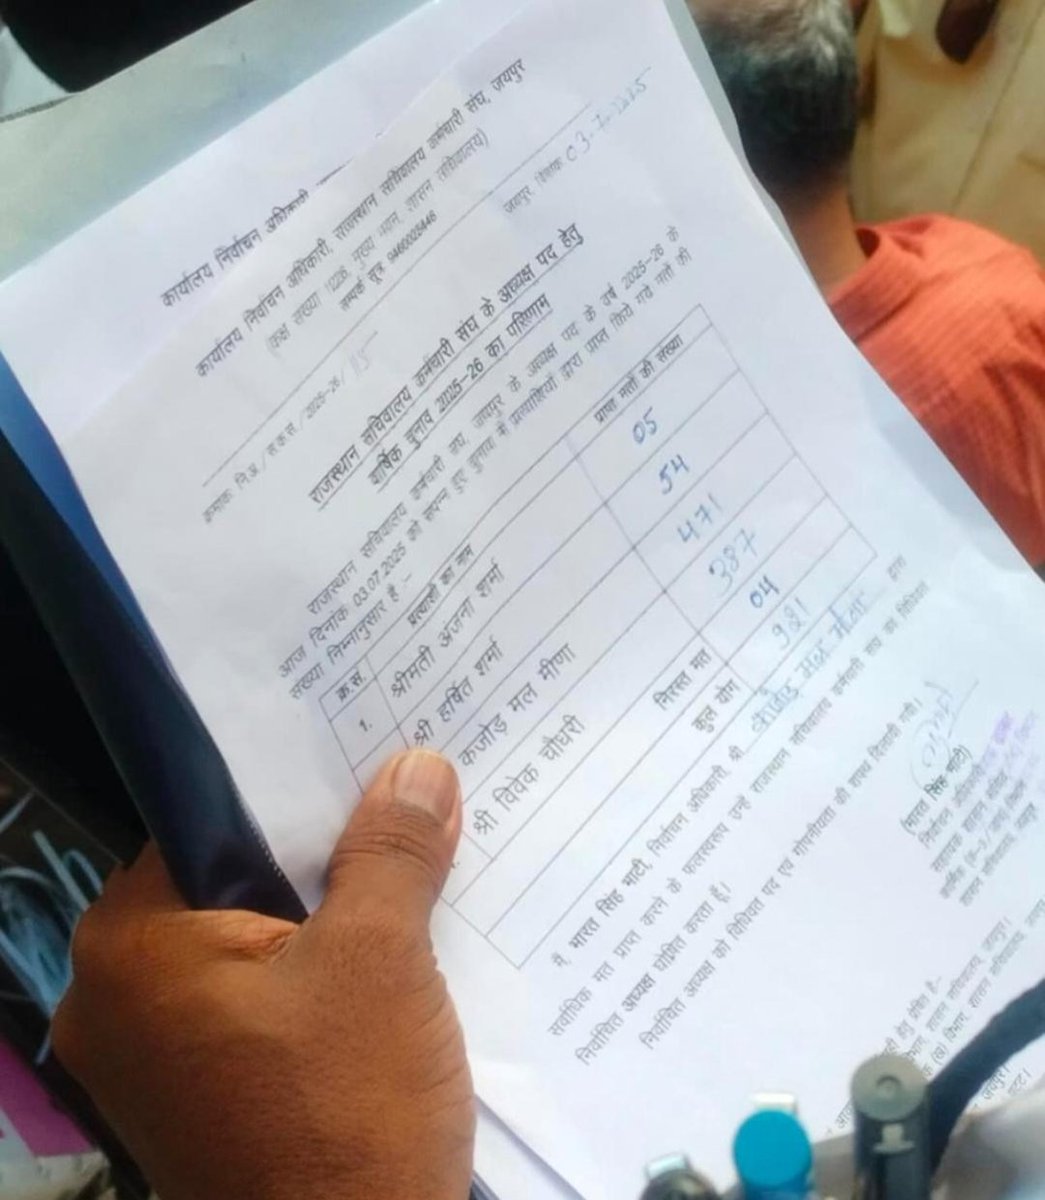 कार्यालय निर्वाचन अधिकारी
कार्यालय निर्वाचन अधिकारी, राजस्थान सचिवालय कर्मचारी संघ, जयपुर
(कक्ष संख्या 1026, मुख्य भवन, शासन सचिवालय)
सम्पर्क सूत्र
क्रमांक: नि.अ./स.क.स./2025-26/115
जयपुर, दिनांक 03.7.2025
राजस्थान सचिवालय कर्मचारी संघ के अध्यक्ष पद हेतु
वार्षिक चुनाव 2025-26 का परिणाम
राजस्थान सचिवालय कर्मचारी संघ, जयपुर के अध्यक्ष पद के वर्ष 2025-26 के
आज दिनांक 03.07.2025 को संपन्न हुए चुनाव में प्रत्याशियों द्वारा प्राप्त किये गये मतों की
संख्या निम्नानुसार है :-
क्र.सं. प्रत्याशी का नाम प्राप्त मतों की संख्या
1. श्रीमती अंजना शर्मा 05
श्री हर्षित शर्मा 54
कजोड़ मल मीणा 471
श्री विवेक चौधरी 387
निरस्त मत 04
कुल योग 921
मैं, भारत सिंह भाटी, निर्वाचन अधिकारी, श्री कजोड़ मल मीणा द्वारा
सर्वाधिक मत प्राप्त करने के फलस्वरूप उन्हें राजस्थान सचिवालय कर्मचारी संघ का विधिवत
निर्वाचित अध्यक्ष घोषित करता हूँ।
निर्वाचित अध्यक्ष को विधिवत पद एवं गोपनीयता की शपथ दिलायी गयी।
(भारत सिंह भाटी)
निर्वाचन अधिकारी
हेतु प्रेषित है:-
शासन सचिवालय, जयपुर।
विभाग, शासन सचिवालय, जयपुर